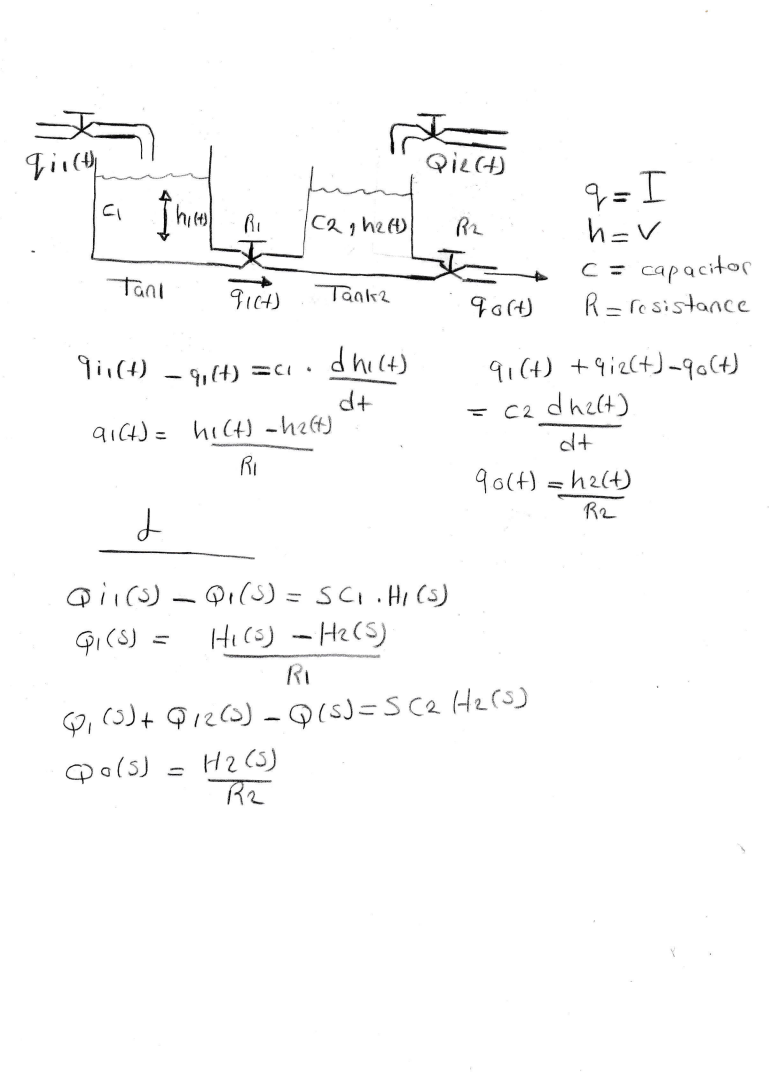 qi1(t)
Qi2(t)
C1
h1(t)
R1
C2, h2(t)
R2
Tan1
q1(t)
Tank2
q0(t)
q = I
h = V
C = capacitor
R = resistance
qi1(t) - q1(t) = C1 . dh1(t)/dt
q1(t) = h1(t) - h2(t)/R1
q1(t) + qi2(t) - q0(t)
= C2 dh2(t)/dt
q0(t) = h2(t)/R2
Qi1(S) - Q1(S) = SC1 . H1(S)
Q1(S) = H1(S) - H2(S)/R1
Q1(S) + Qi2(S) - Q(S) = SC2 H2(S)
Q0(S) = H2(S)/R2